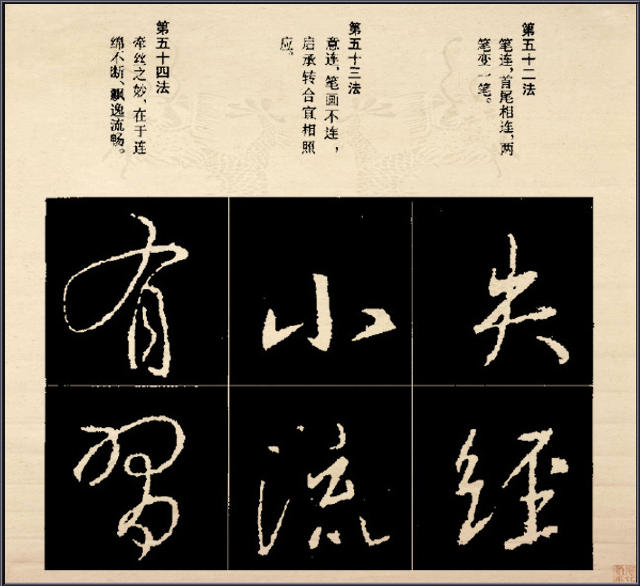 第五十二法
笔连,首尾相连,两
笔变一笔。
第五十三法
意连,笔画不连,
启承转合宜相照
应。
第五十四法
牵丝之妙、在于连
绵不断、飘逸流畅。
失 小 有
经 流 習